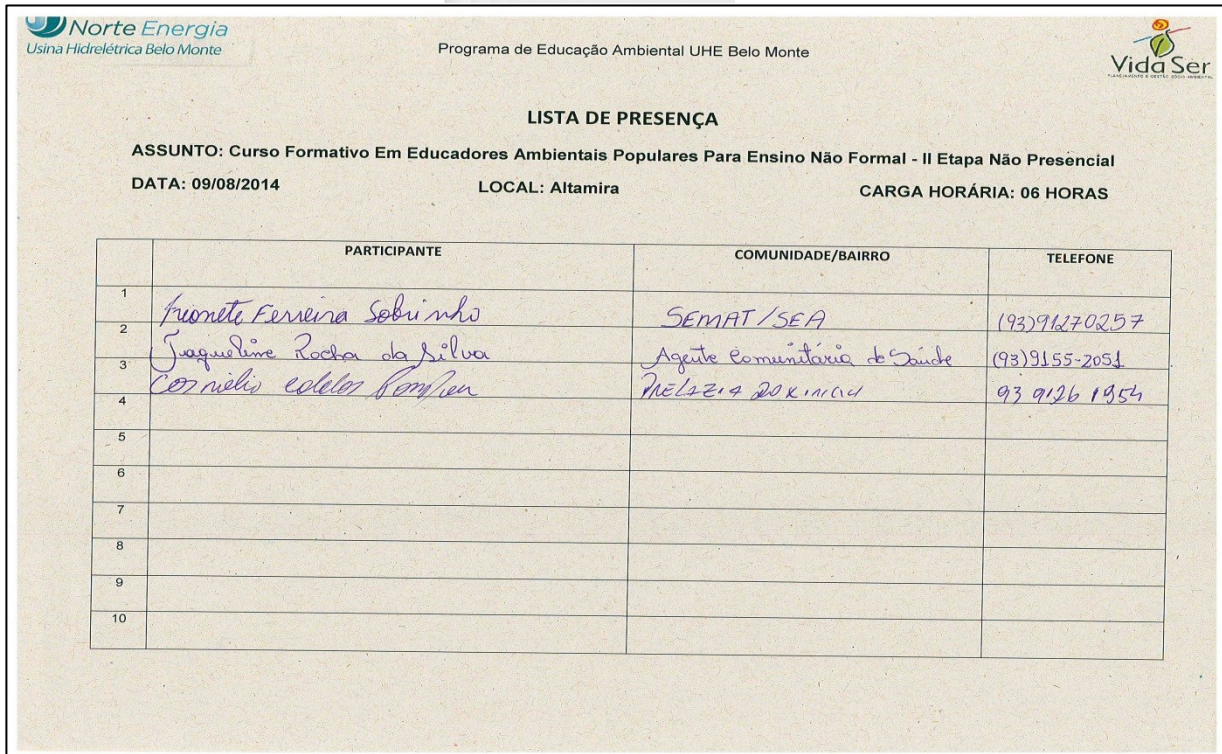 Norte Energia
Usina Hidrelétrica Belo Monte
Programa de Educação Ambiental UHE Belo Monte
Vida Ser
LISTA DE PRESENÇA
ASSUNTO: Curso Formativo Em Educadores Ambientais Populares Para Ensino Não Formal - II Etapa Não Presencial
DATA: 09/08/2014 LOCAL: Altamira CARGA HORÁRIA: 06 HORAS
PARTICIPANTE COMUNIDADE/BAIRRO TELEFONE
1 Ferreira Sobrinho SEMAT/SEA (93)91270257
2 Jaqueline Rocha da Silva Agente Comunitária de Saúde (93)9155-2051
3 93 9126 1954
4
5
6
7
8
9
10